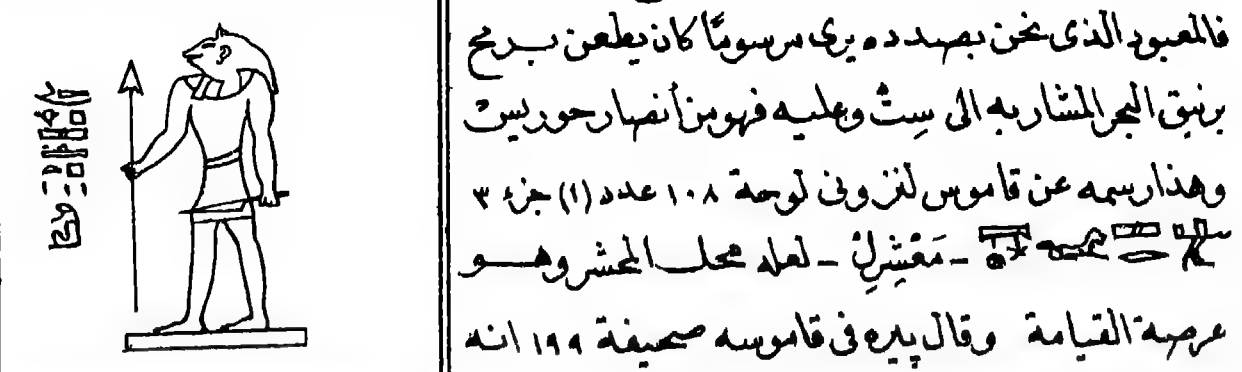 فالمعبود الذى نحن بصدده يرى مرسوما كان يطعن برمح
برنيق البحر المشار به الى سِتْ وعليه فهو من أنصار حوريس
وهذا رسمه عن قاموس لنزونى لوحة ١٠٨ عدد (١) جزء ٣
- لعله محل المحشر وهو
عرصة القيامة وقال پيره فى قاموسه صحيفة ١٩٩ انه